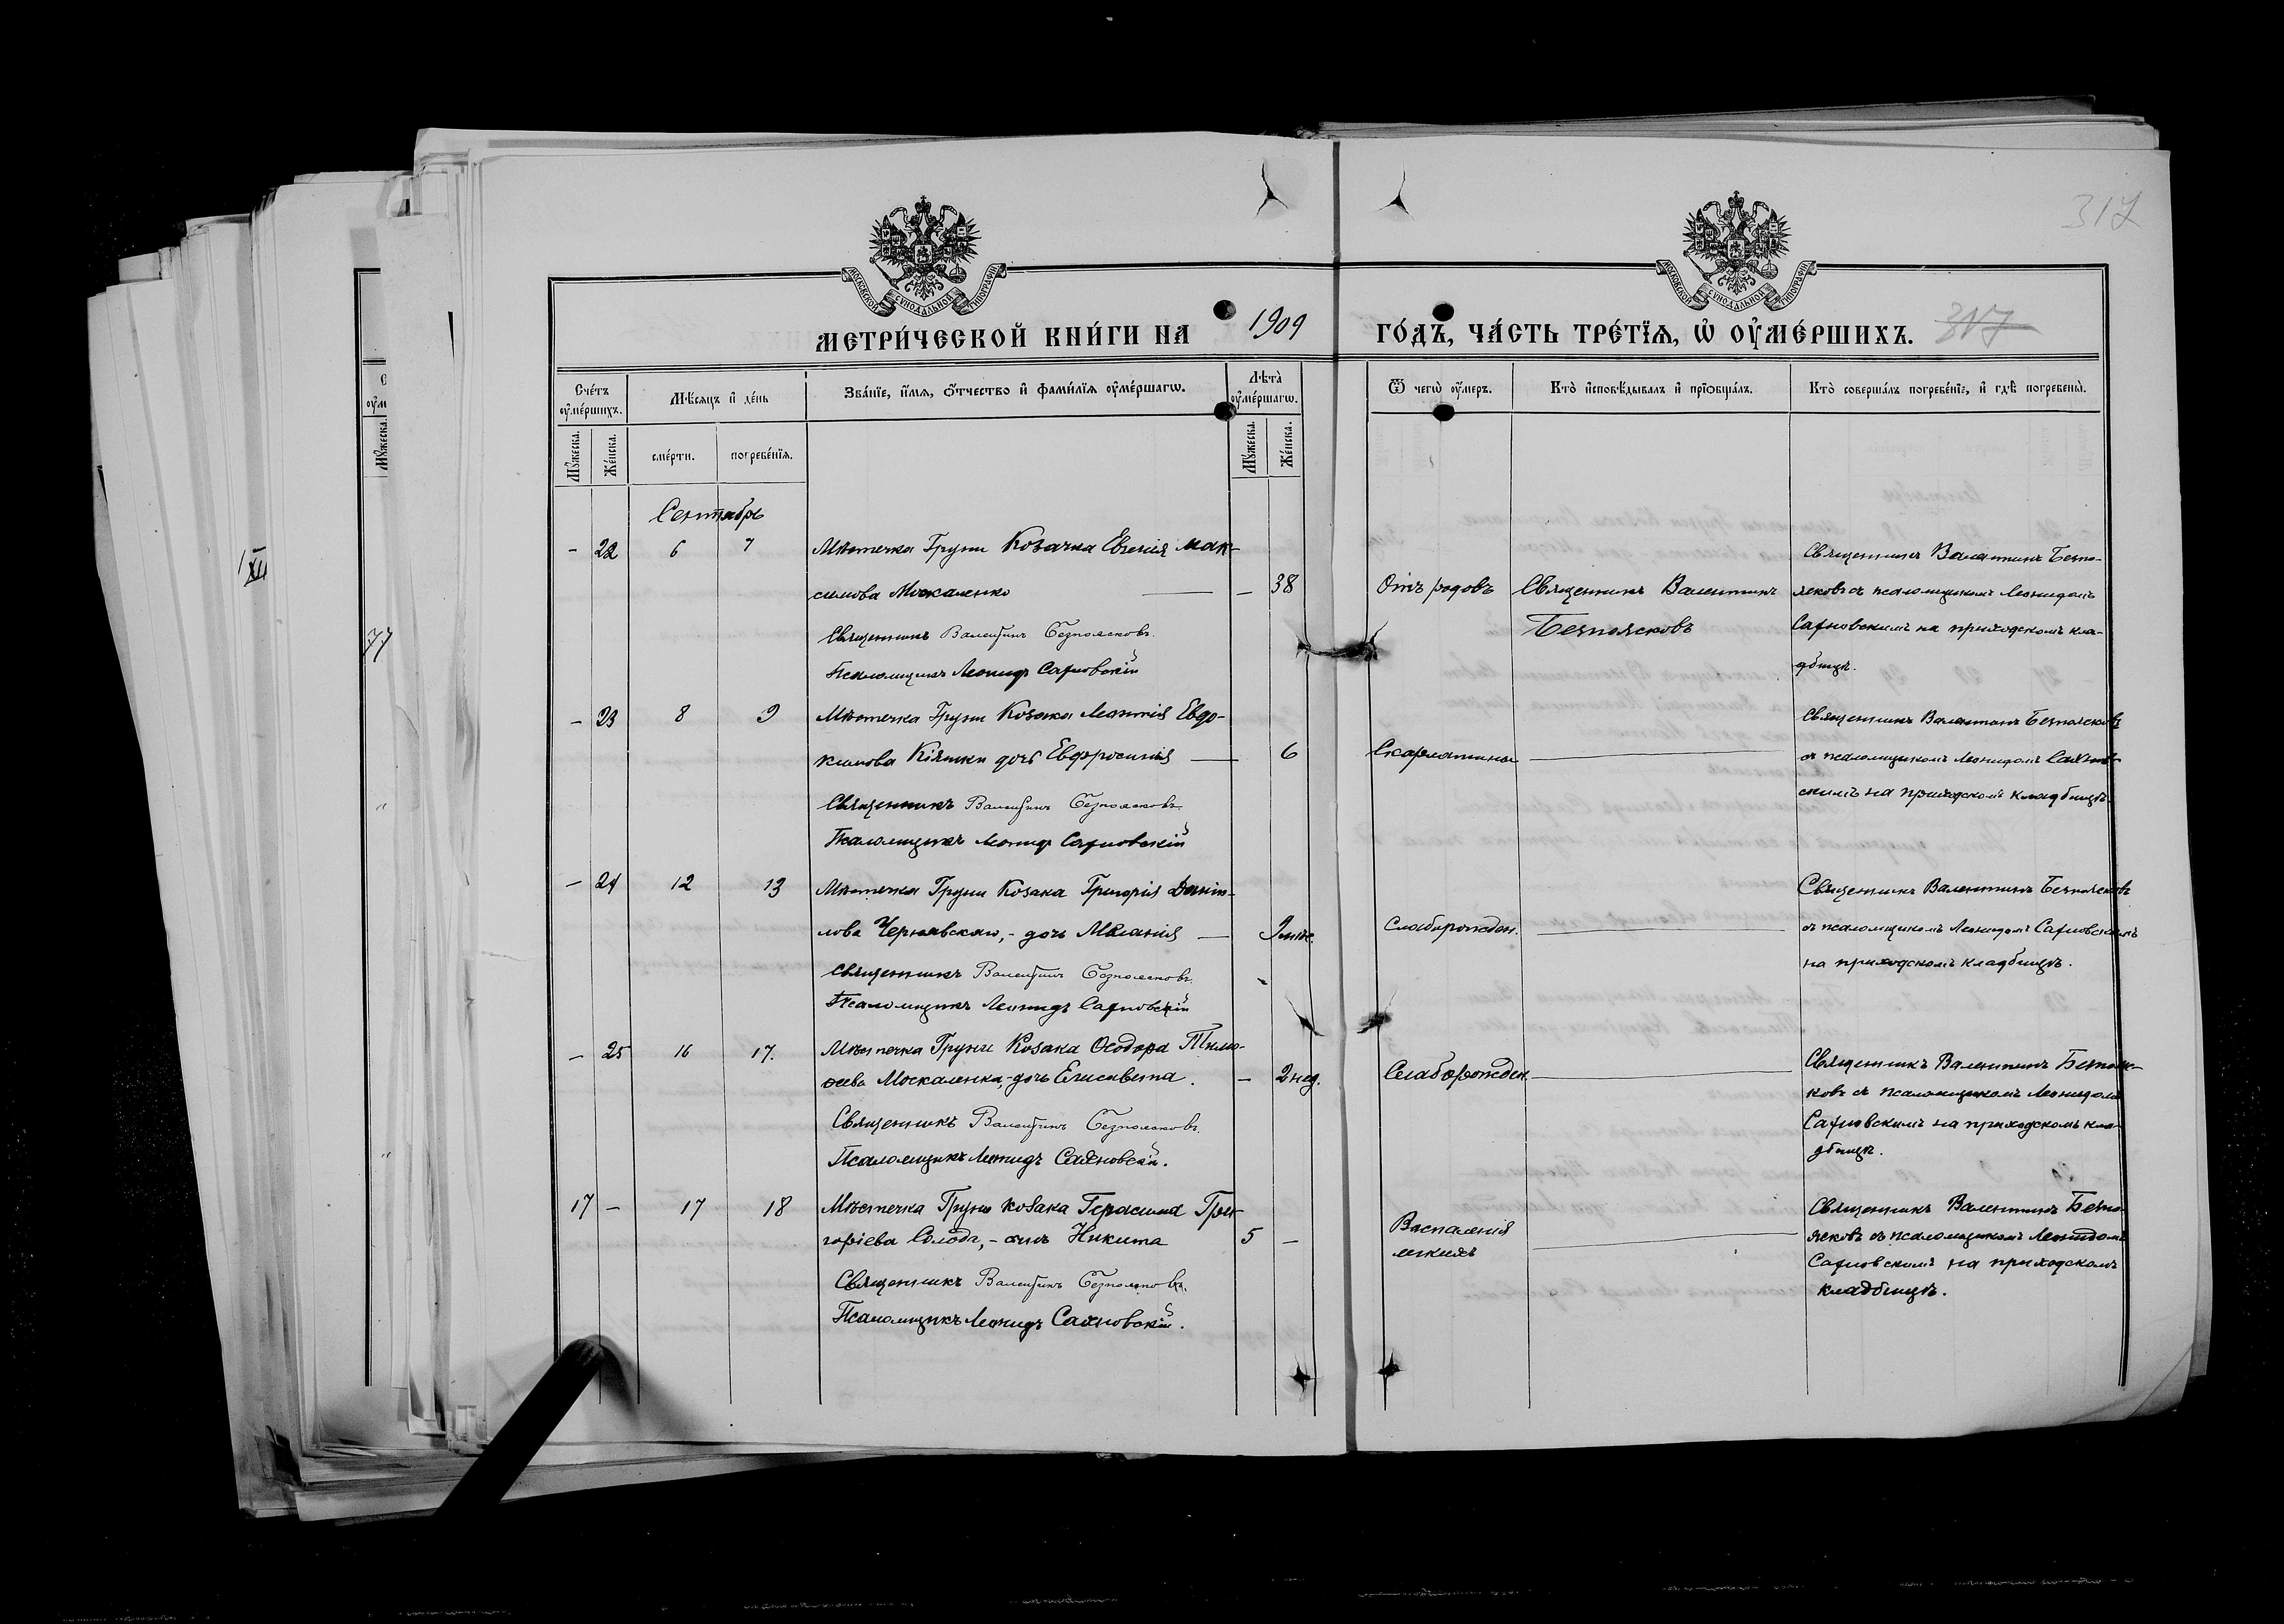 317
МОСКОВСКОЙ СѴНОДАЛЬНОЙ ТИПОГРАФІИ
МОСКОВСКОЙ СѴНОДАЛЬНОЙ ТИПОГРАФІИ
МЕТРИ́ЧЕСКОЙ КНИ́ГИ НА 1909 ГО́ДЪ, ЧА́СТЬ ТРЕ́ТЇѦ, Ѡ҆ ОУ҆МЕ́РШИХЪ. 317
Сче́тъ оу҆ме́ршихъ.
Мѣ́сѧцъ и҆ де́нь
Зва́нїе, и҆́мѧ, ѻ҆́тчество и҆ фами́лїѧ оу҆ме́ршагѡ.
Лѣта̀ оу҆ме́ршагѡ.
Ѿ чегѡ̀ оу҆́меръ.
Кто̀ и҆сповѣ́дывалъ и҆ прїѡбща́лъ.
Кто̀ соверша́лъ погребе́нїе, и҆ гдѣ̀ погребены̀.
Мꙋ́жеска.
Же́нска.
сме́рти.
погребе́нїѧ.
Мꙋ́жеска.
Же́нска.
Сентябрь
- 22 6 7 Мѣстечка Груни Козачка Евгенія Мак-
симова Москаленко — 38
Священникъ Валентинъ Безпоясковъ.
Псаломщикъ Леонидъ Сахновскій
Отъ родовъ
Священникъ Валентинъ
Безпоясковъ
Священникъ Валентинъ Безпо-
ясковъ съ псаломщикомъ Леонидомъ
Сахновскимъ на приходскомъ кла-
дбищѣ.
- 23 8 9 Мѣстечка Груни Козака Леонтія Евдо-
кимова Кіяшки дочь Евфросинія — 6
Священникъ Валентинъ Безпоясковъ.
Псаломщикъ Леонидъ Сахновскій
Скарлатины
Священникъ Валентинъ Безпоясковъ
съ псаломщикомъ Леонидомъ Сахнов-
скимъ на приходскомъ кладбищѣ.
- 24 12 13 Мѣстечка Груни Козака Григорія Дани-
лова Чернявскаго, - дочь Меланія —
Священникъ Валентинъ Безпоясковъ.
Псаломщикъ Леонидъ Сахновскій
Слаборожден.
Священникъ Валентинъ Безпоясковъ
съ псаломщикомъ Леонидомъ Сахновскимъ
на приходскомъ кладбищѣ.
- 25 16 17. Мѣстечка Груни Козака Ѳеодора Тимо-
ѳеева Москаленка, - дочь Елисавета. — 2 нед.
Священникъ Валентинъ Безпоясковъ.
Псаломщикъ Леонидъ Сахновскій.
Слаборожден.
Священникъ Валентинъ Безпояс-
ковъ съ псаломщикомъ Леонидомъ
Сахновскимъ на приходскомъ кла-
дбищѣ.
17 - 17 18 Мѣстечка Груни Козака Герасима Гри-
горіева Солода, - сынъ Никита 5 —
Священникъ Валентинъ Безпоясковъ.
Псаломщикъ Леонидъ Сахновскій.
Воспаленія
легкихъ
Священникъ Валентинъ Безпо-
ясковъ съ псаломщикомъ Леонидомъ
Сахновскимъ на приходскомъ
кладбищѣ.